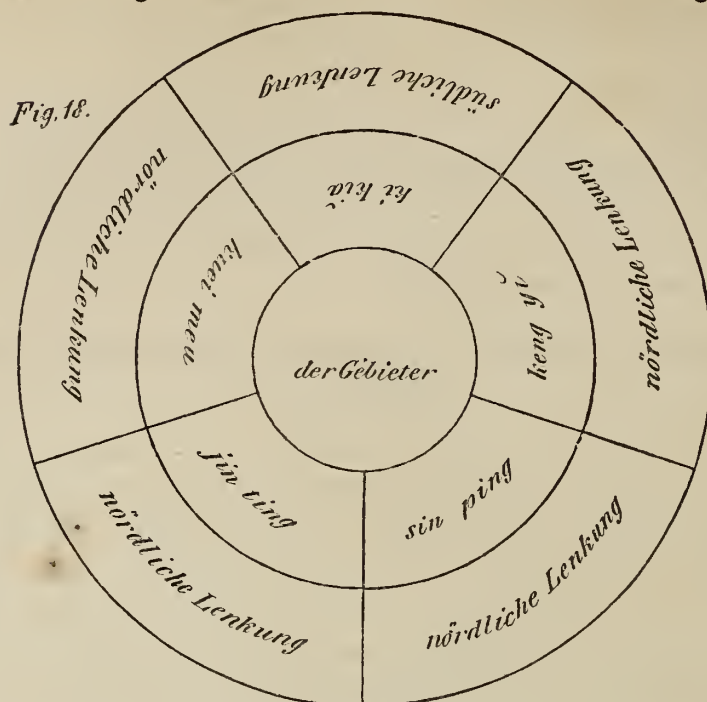 Fig. 18.
südliche Lenkung
nördliche Lenkung
nördliche Lenkung
nördliche Lenkung
nördliche Lenkung
ki kiă
keng yĭ
sin ping
jin ting
kuei meu
der Gebieter